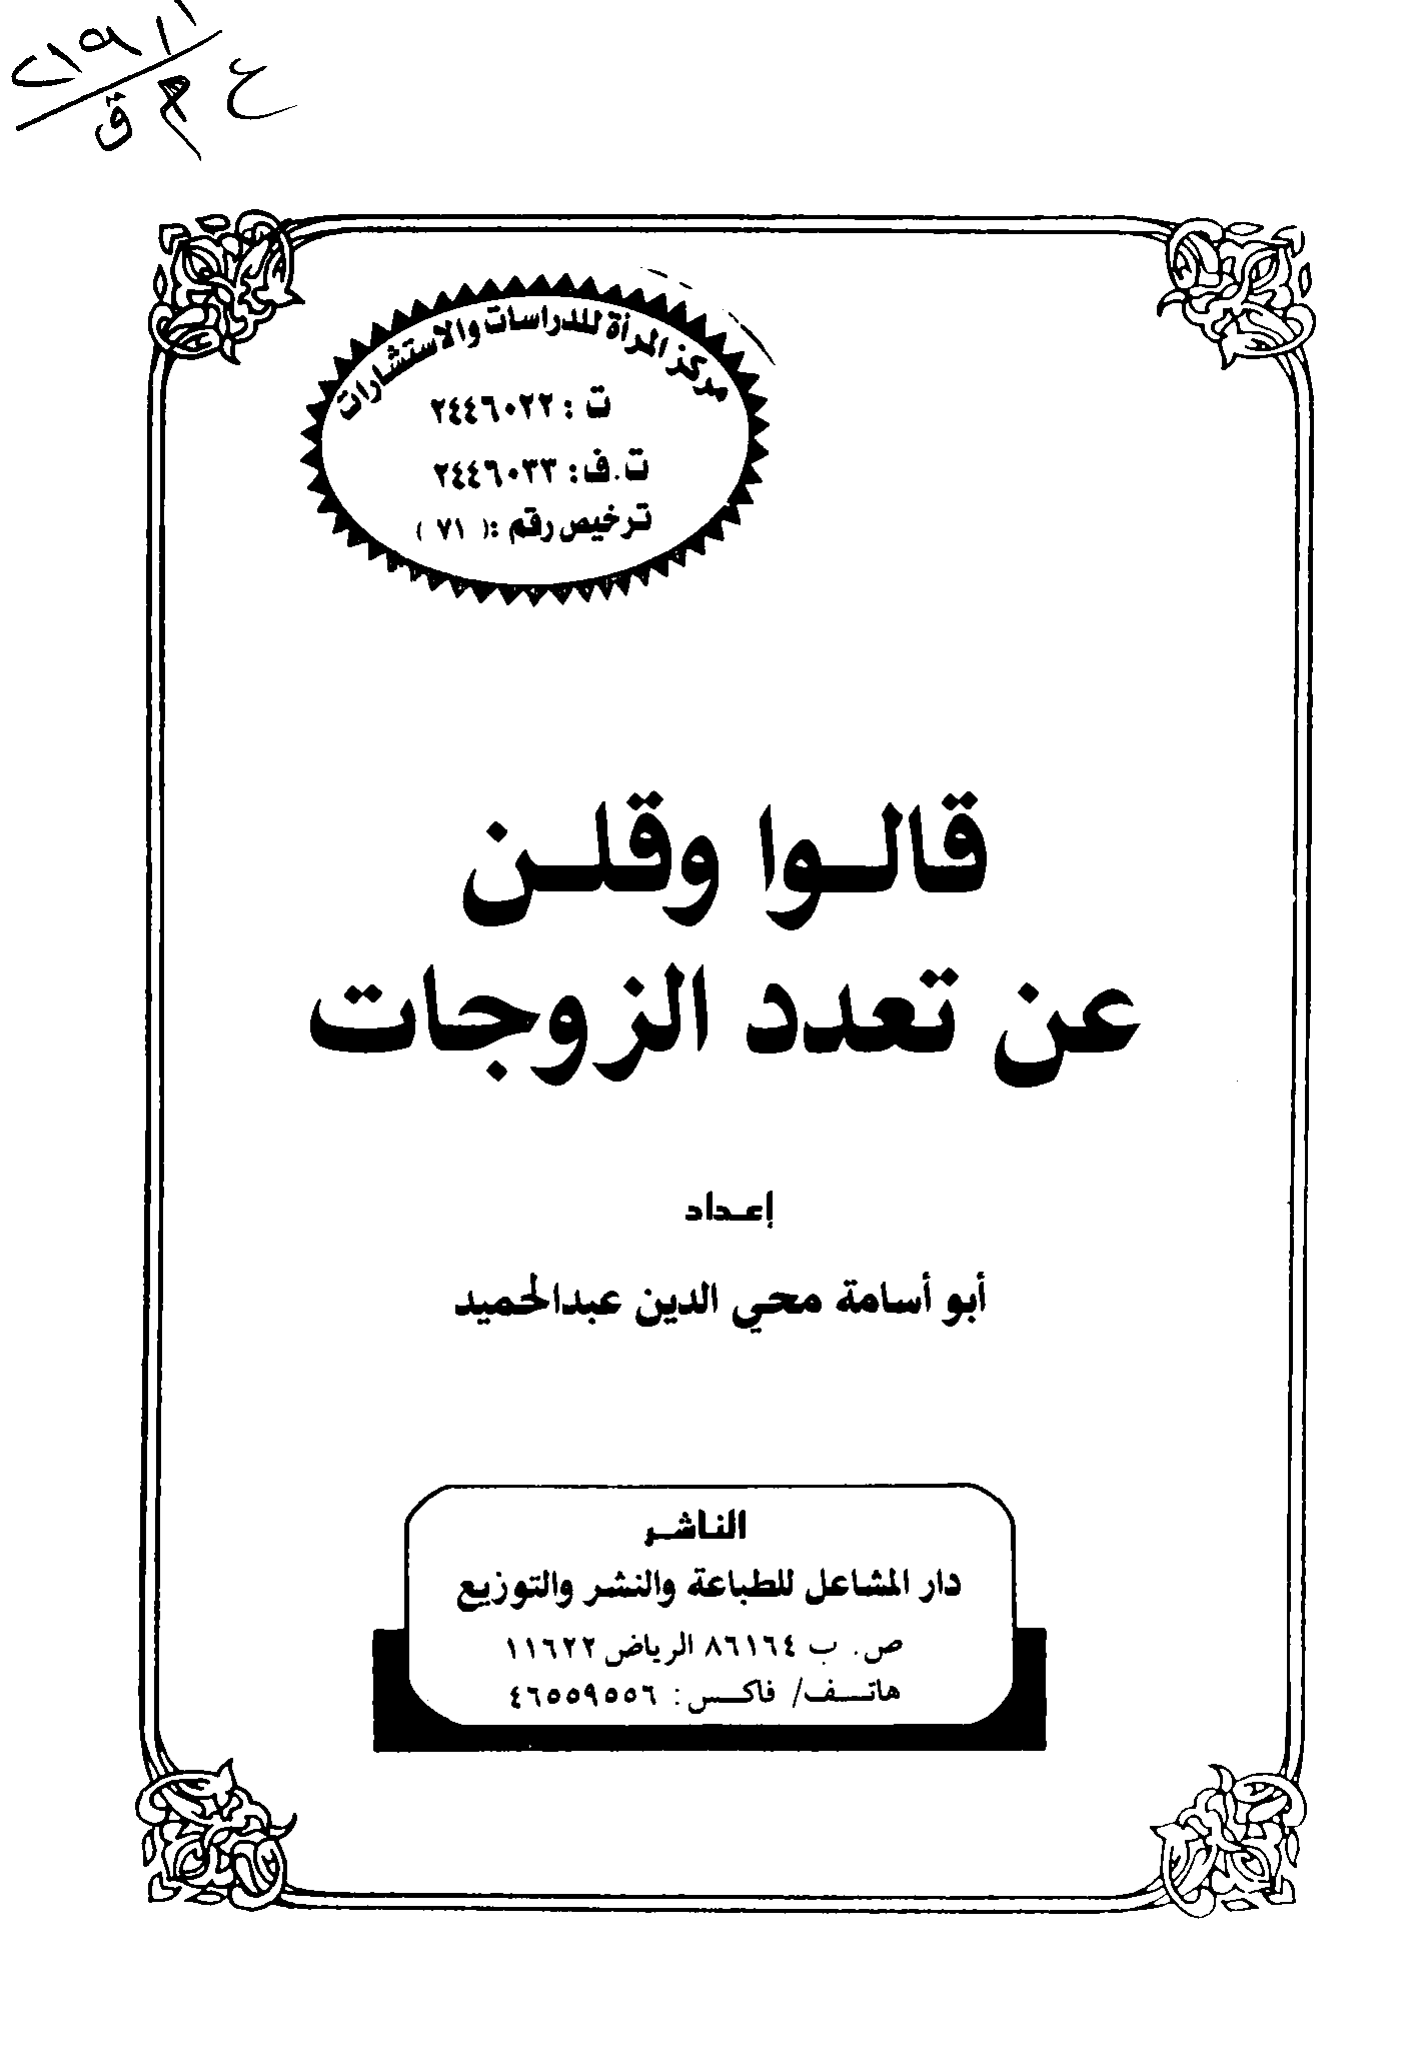 ٢١٩,١١
ع م ق
مركز المرأة للدراسات والاستشارات
ت : ٢٤٤٦٠٢٢
ت.ف: ٢٤٤٦٠٣٣
ترخيص رقم :( ٧١ )
قالوا وقلن
عن تعدد الزوجات
إعداد
أبو أسامة محي الدين عبدالحميد
الناشر
دار المشاعل للطباعة والنشر والتوزيع
ص. ب ٨٦١٦٤ الرياض ١١٦٢٢
هاتف/ فاكس: ٤٦٥٥٩٥٥٦